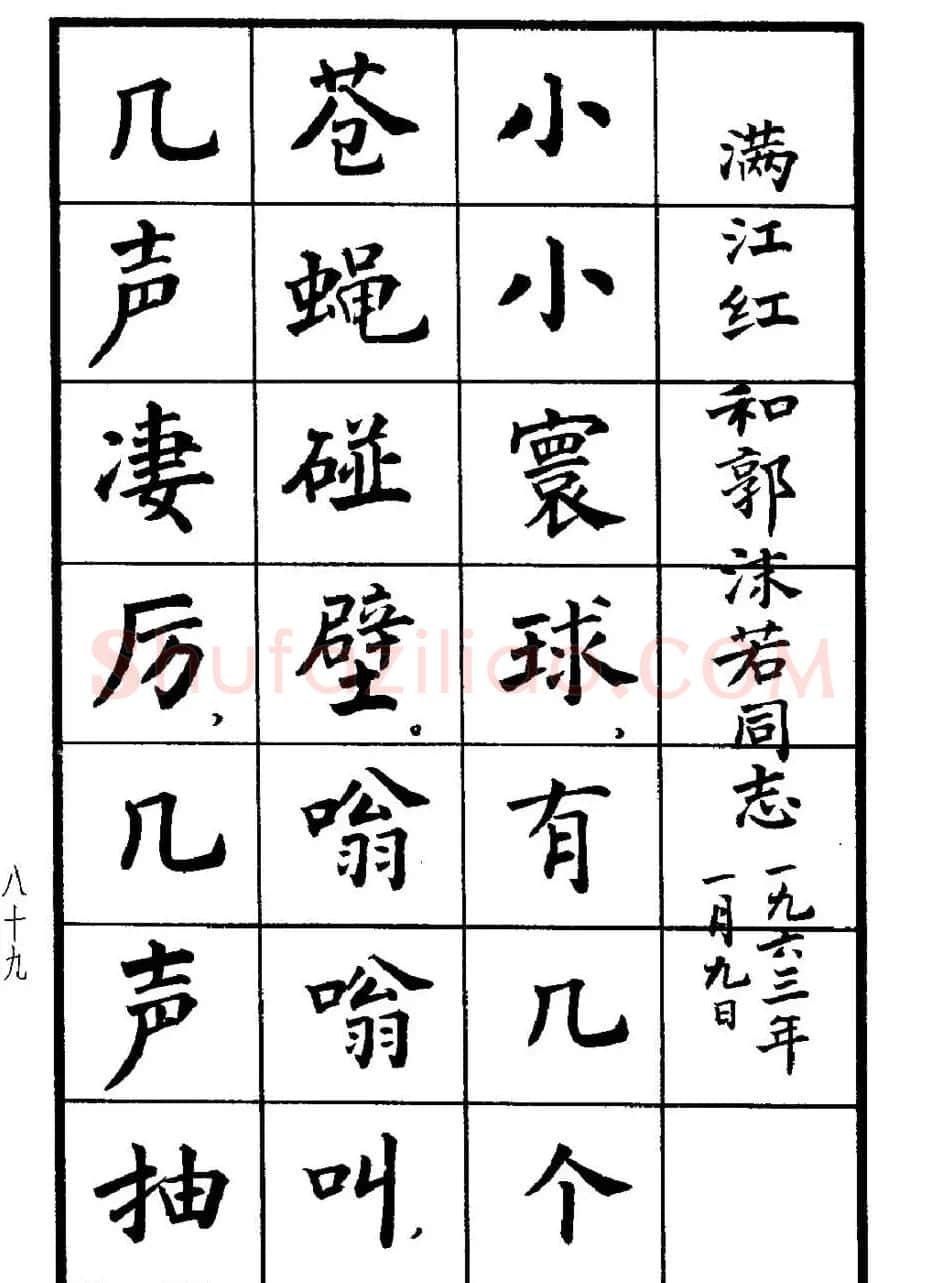 满江红 和郭沫若同志
一九六三年
一月九日
小小寰球，有几个
苍蝇碰壁。嗡嗡叫，
几声凄厉，几声抽
八十九
Shufaziliao.COM